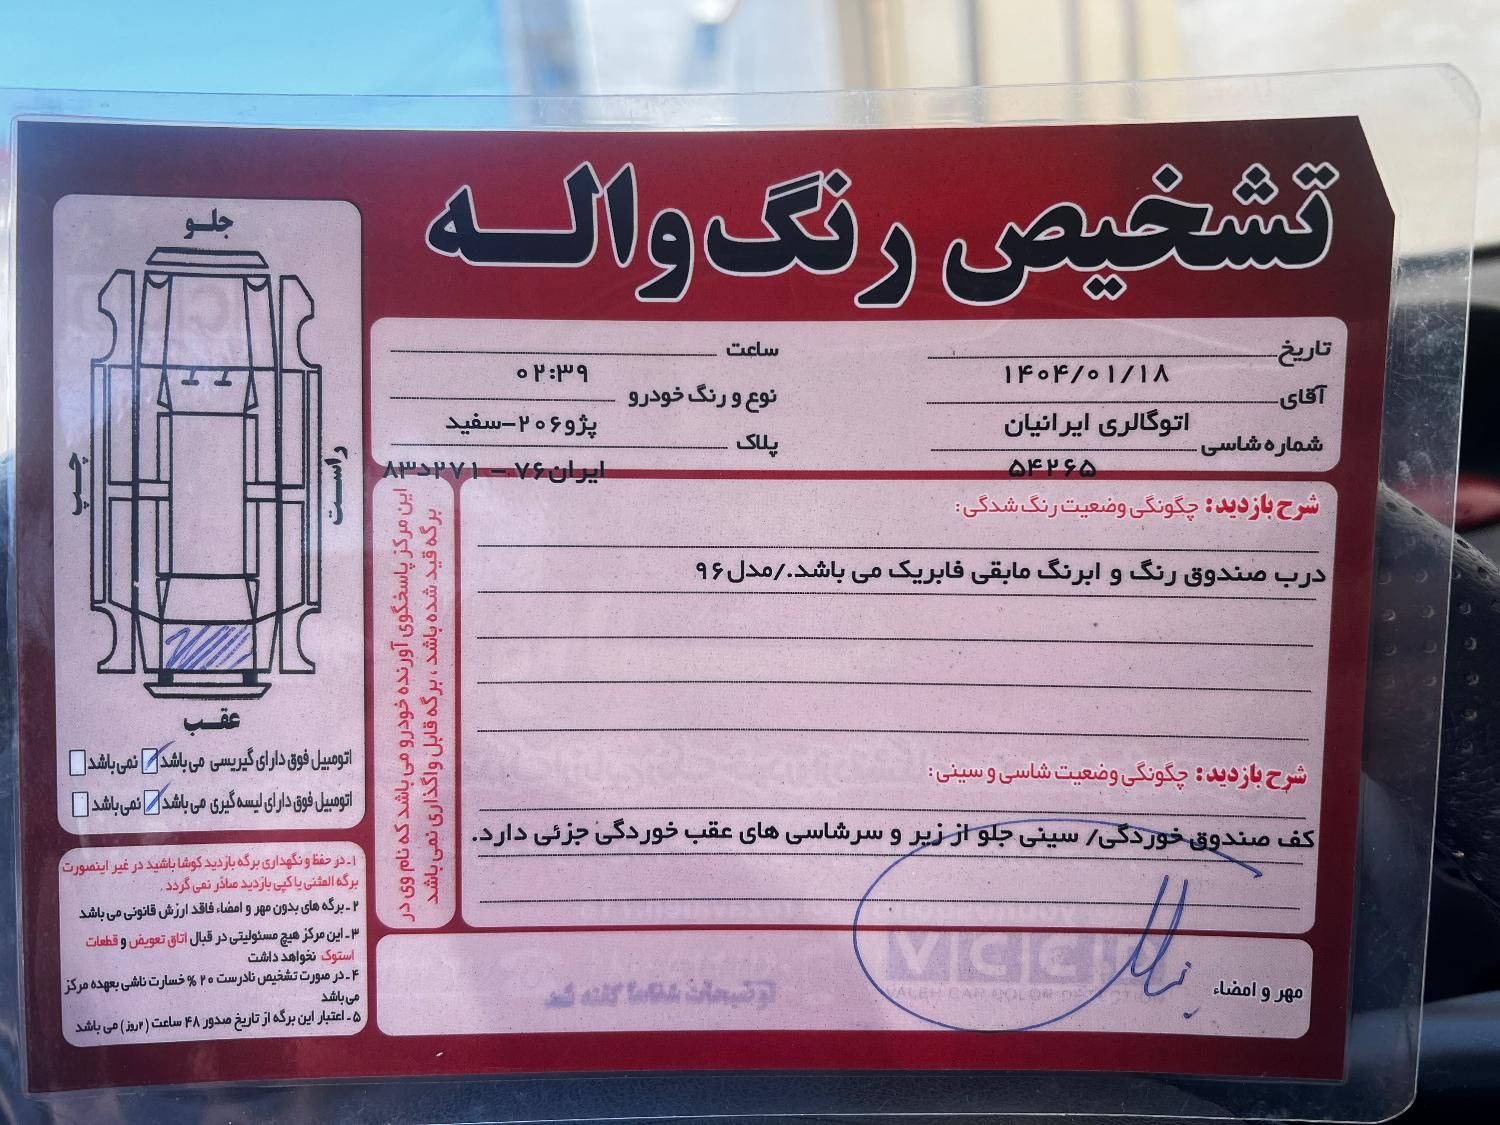 تشخیص رنگ واله
تاریخ
۱۴۰۴/۰۱/۱۸
ساعت
۰۲:۳۹
آقای
اتوگالری ایرانیان
نوع و رنگ خودرو
پژو۲۰۶-سفید
شماره شاسی
۵۴۲۶۵
پلاک
ایران۷۶ - ۲۷۱د۸۳
شرح بازدید: چگونگی وضعیت رنگ شدگی:
درب صندوق رنگ و ابرنگ مابقی فابریک می باشد./مدل۹۶
شرح بازدید: چگونگی وضعیت شاسی و سینی:
کف صندوق خوردگی/ سینی جلو از زیر و سرشاسی های عقب خوردگی جزئی دارد.
مهر و امضاء
توضیحات شفاها گفته شد
VCCD
VALEH CAR COLOR DETECTION
این مرکز پاسخگوی آورنده خودرو می باشد که نام وی در
برگه قید شده باشد ، برگه قابل واگذاری نمی باشد
جلو
چپ
راست
عقب
اتومبیل فوق دارای گیریسی می باشد نمی باشد
اتومبیل فوق دارای لیسه گیری می باشد نمی باشد
۱- در حفظ و نگهداری برگه بازدید کوشا باشید در غیر اینصورت
برگه المثنی یا کپی بازدید صادر نمی گردد.
۲- برگه های بدون مهر و امضاء فاقد ارزش قانونی می باشد
۳- این مرکز هیچ مسئولیتی در قبال اتاق تعویض و قطعات
استوک نخواهد داشت
۴- در صورت تشخیص نادرست ۲۰ % خسارت ناشی بعهده مرکز
می باشد
۵- اعتبار این برگه از تاریخ صدور ۴۸ ساعت (۲روز) می باشد